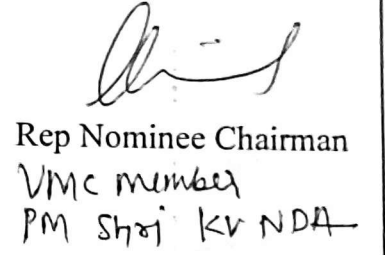 Rep Nominee Chairman
VMC member
PM Shri KV NDA